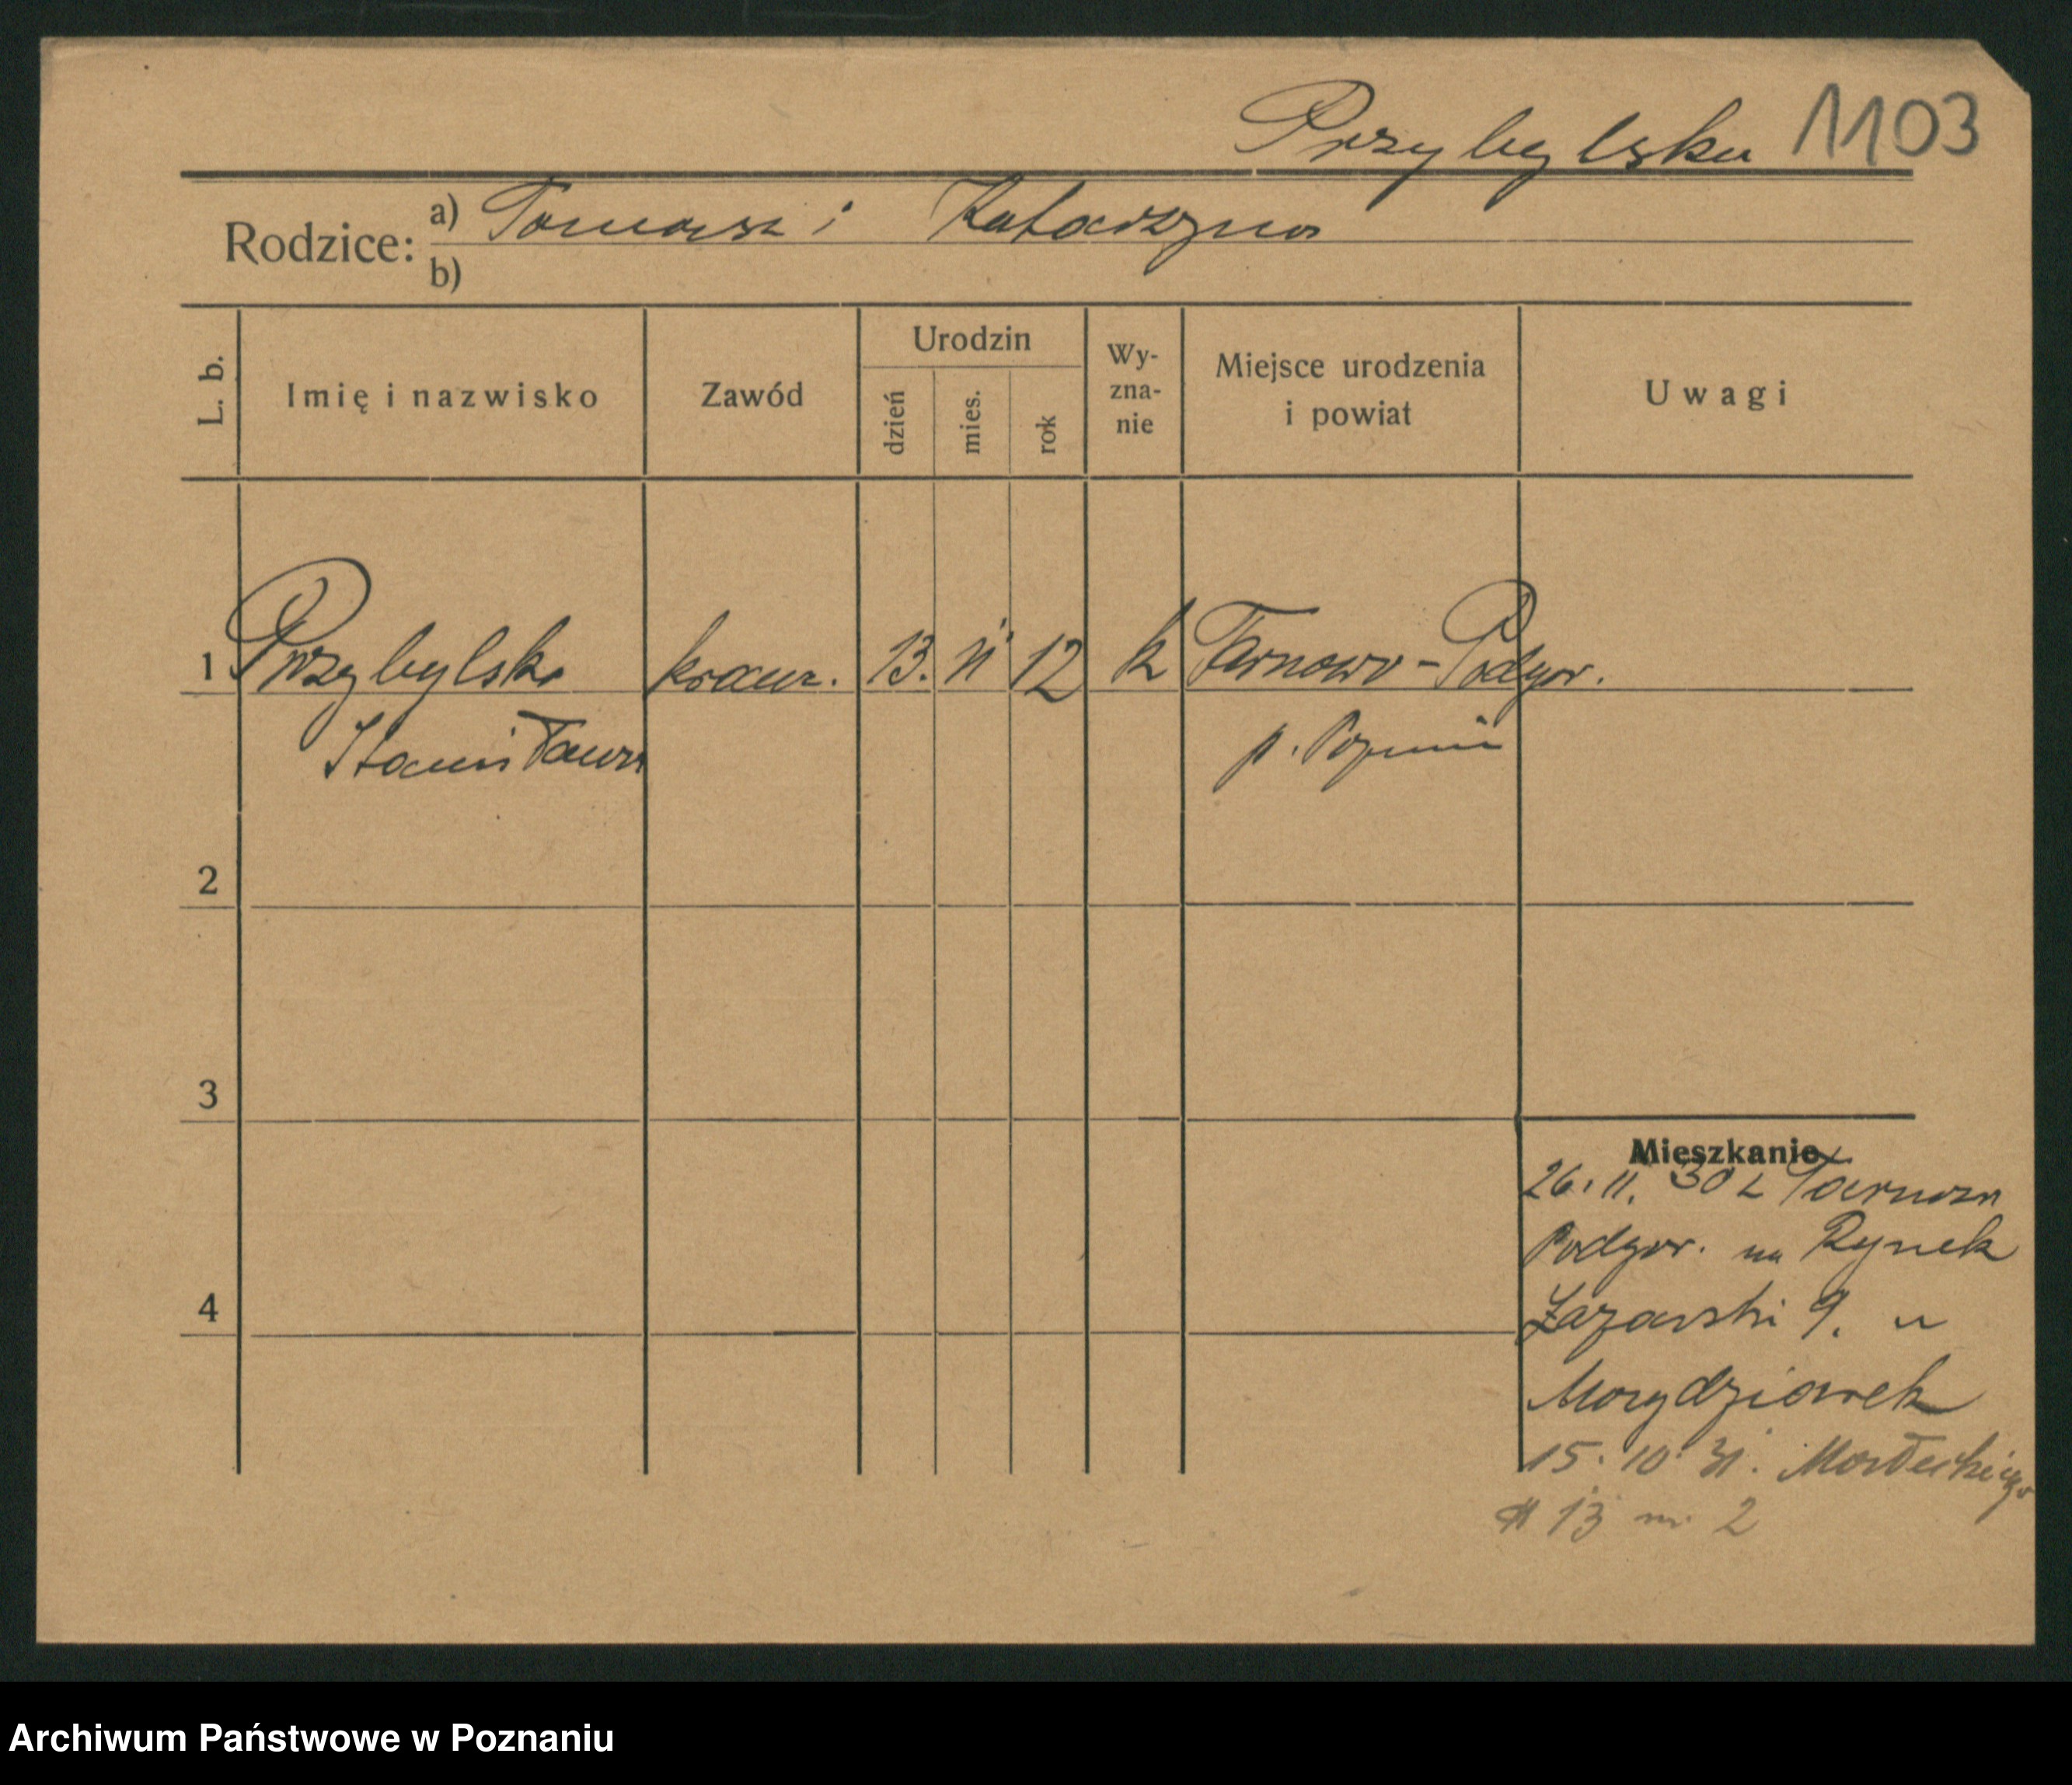 Przybylska 1103
Rodzice: a) Tomasz i Katarzyna
b)
L. b. Imię i nazwisko Zawód Urodzin dzień mies. rok Wy-zna-nie Miejsce urodzenia i powiat Uwagi
1 Przybylska krawc. 13. 11 12 k Tarnowo-Podgór.
Stanisława p. Poznań
2
3
Mieszkanie
26. 11. 30 z Tarnowa
Podgór. na Rynek
4
Łazarski 9. u
15. 10. 31.
13 m. 2
Archiwum Państwowe w Poznaniu